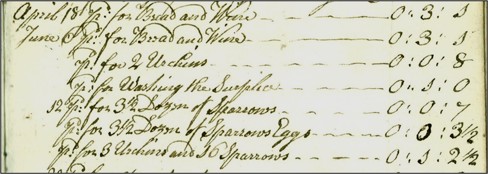 April 18 pd. for Bread and Wine - - - 0 : 3 : 1
June 6 pd. for Bread and Wine - - - 0 : 3 : 1
pd. for 2 Urchins - - - - 0 : 0 : 8
pd. for Washing the Surplice - - - - 0 : 1 : 0
12 pd. for 3½ Dozen of Sparrows - - - 0 : 0 : 7
pd. for 3½ Dozen of Sparrows Eggs - - - 0 : 0 : 3½
pd. for 3 Urchins and 16 Sparrows - - - - 0 : 1 : 2½